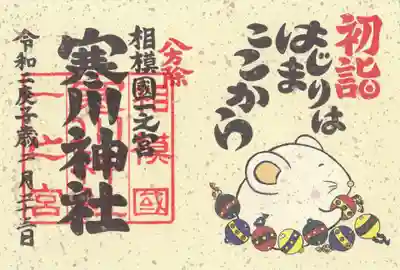 初詣
はじまりは
ここから
八方除
相模國一之宮
寒川神社
令和二庚子歳一月二十三日
相模國
一之宮